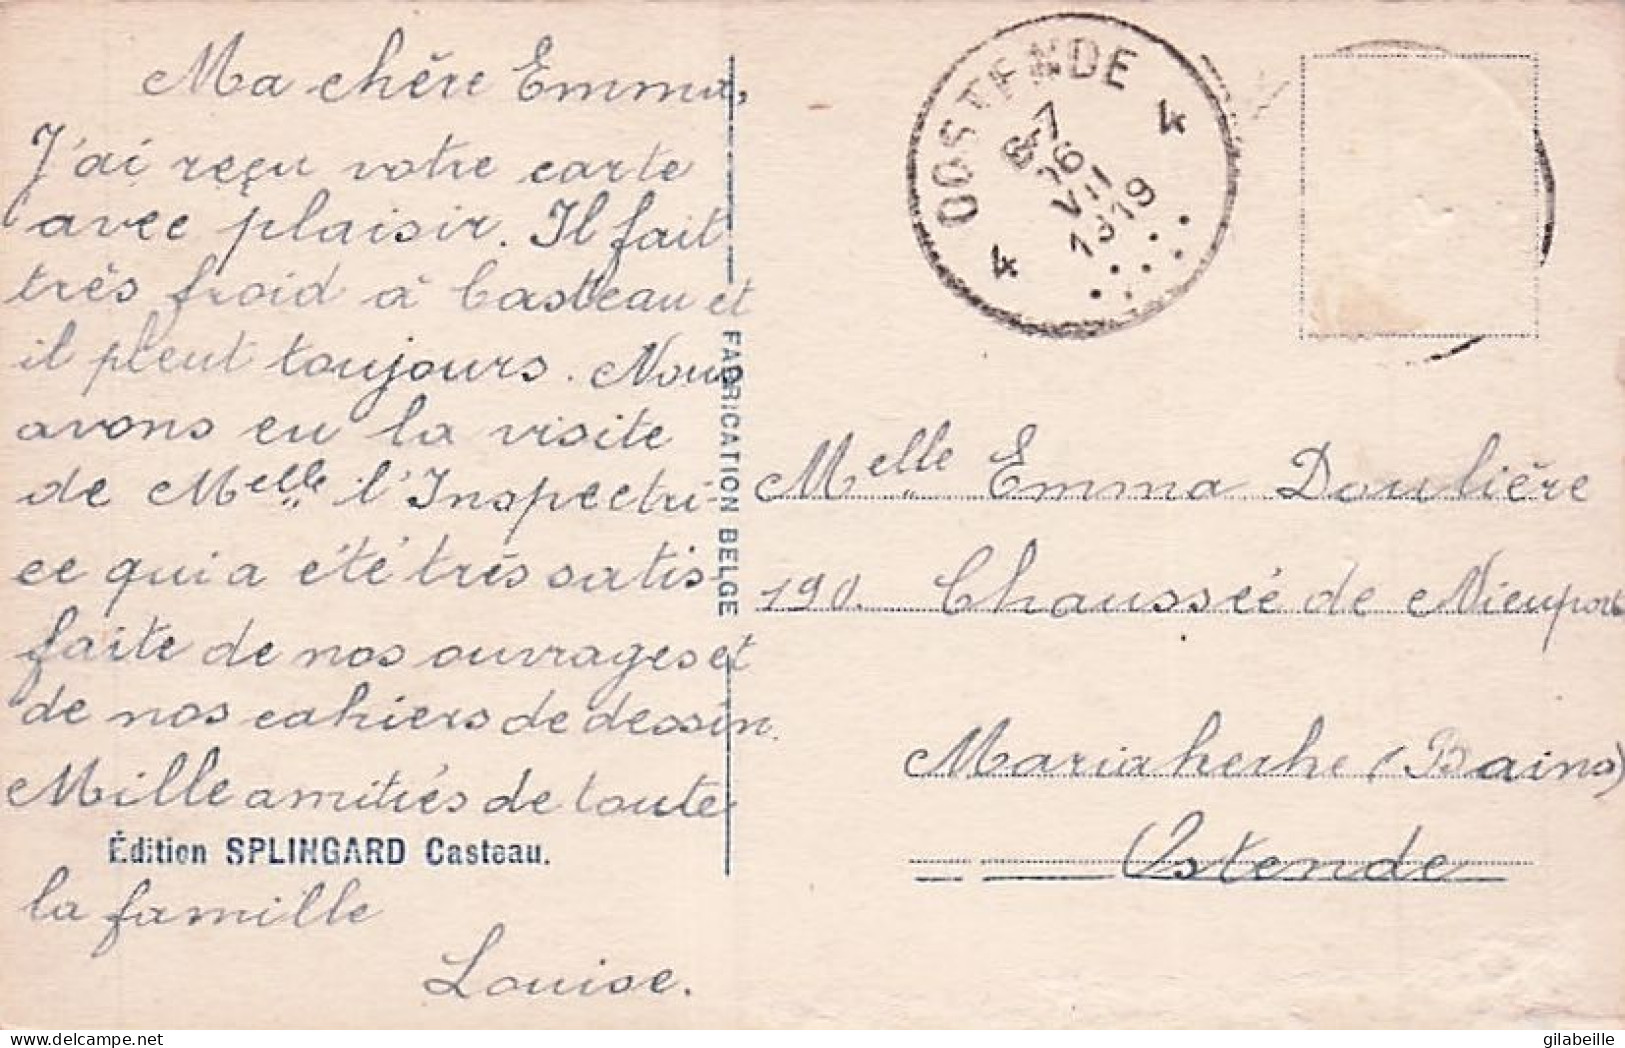 Ma chère Emma,
J'ai reçu votre carte
avec plaisir. Il fait
très froid à Casteau et
il pleut toujours. Nous
avons eu la visite
de Melle l'Inspectri-
ce qui a été très satis-
faite de nos ouvrages et
de nos cahiers de dessin.
Mille amitiés de toute
Édition SPLINGARD Casteau.
la famille
Louise.
FABRICATION BELGE
OOSTENDE
4 4
6-7
VII
1919
Melle Emma Doulière
190. Chaussée de Nieuport
Mariakerke (Bains)
Ostende
gilabeille